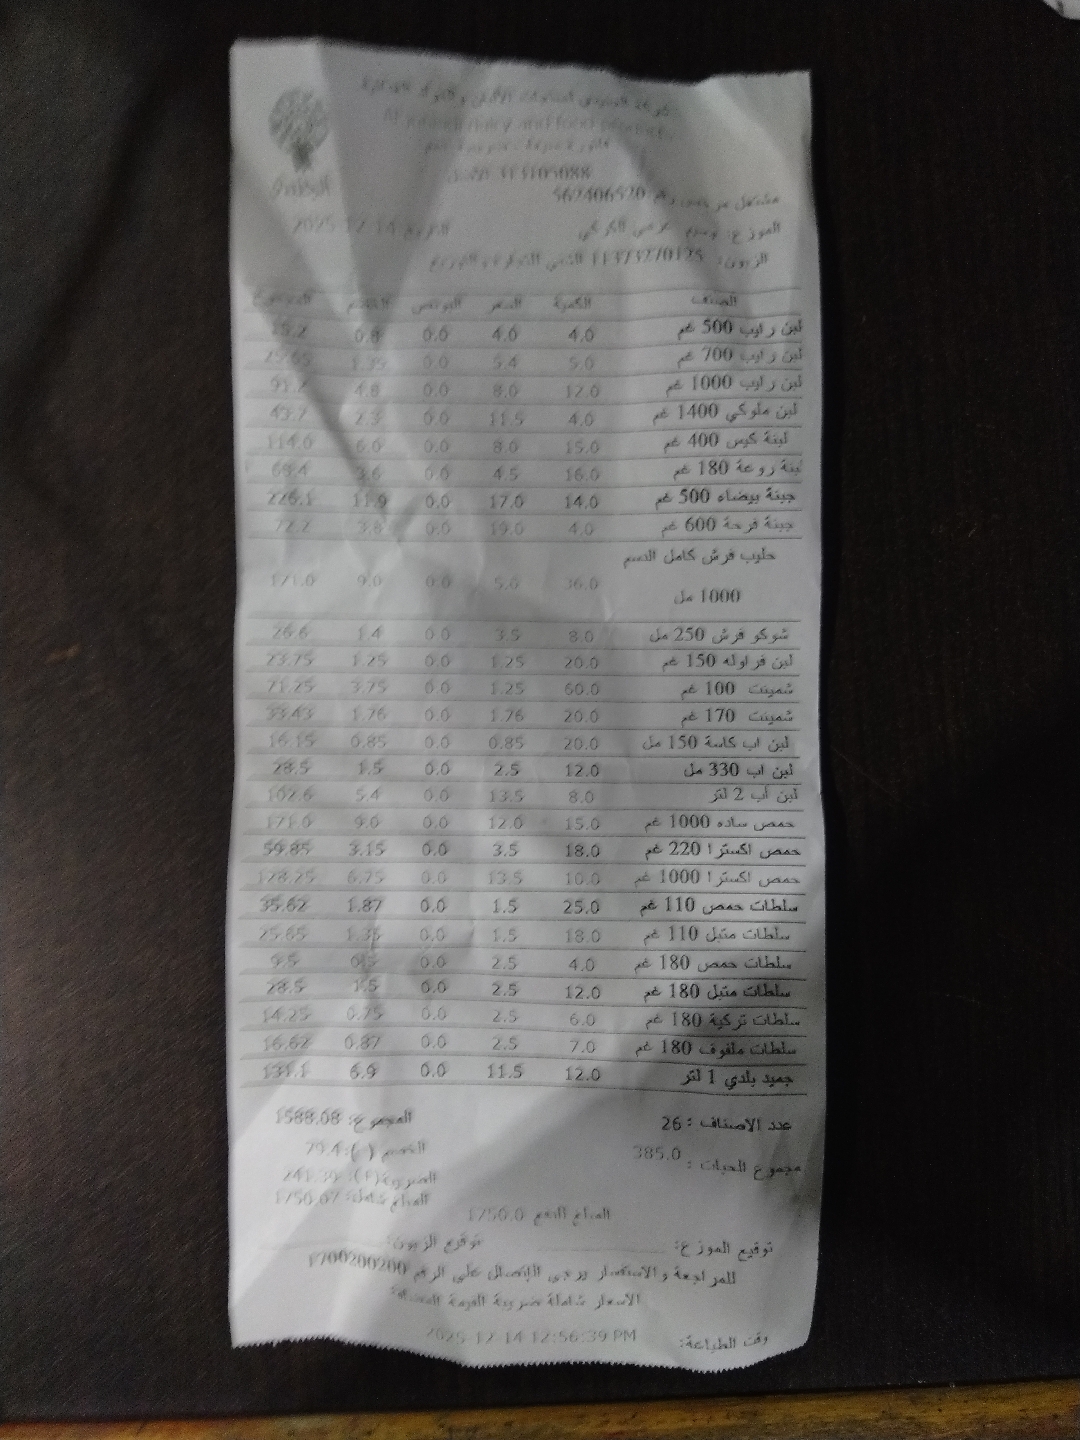 562406520
الموزع:
الزبون: 11373270125
الصنف الكمية السعر البونص الخصم المجموع
لبن رايب 500 غم 4.0 4.0 0.0 0.8 15.2
لبن رايب 700 غم 5.0 5.4 0.0 1.35 25.65
لبن رايب 1000 غم 12.0 8.0 0.0 4.8 91.2
لبن ملوكي 1400 غم 4.0 11.5 0.0 2.3 43.7
لبنة كيس 400 غم 15.0 8.0 0.0 6.0 114.0
لبنة روعة 180 غم 16.0 4.5 0.0 3.6 68.4
جبنة بيضاء 500 غم 14.0 17.0 0.0 11.9 226.1
جبنة فرحة 600 غم 4.0 19.0 0.0 3.8 72.2
حليب فرش كامل الدسم
1000 مل 36.0 5.0 0.0 9.0 171.0
شوكو فرش 250 مل 8.0 3.5 0.0 1.4 26.6
لبن فراوله 150 غم 20.0 1.25 0.0 1.25 23.75
شمينت 100 غم 60.0 1.25 0.0 3.75 71.25
شمينت 170 غم 20.0 1.76 0.0 1.76 33.43
لبن اب كاسة 150 مل 20.0 0.85 0.0 0.85 16.15
لبن اب 330 مل 12.0 2.5 0.0 1.5 28.5
لبن أب 2 لتر 8.0 13.5 0.0 5.4 102.6
حمص ساده 1000 غم 15.0 12.0 0.0 9.0 171.0
حمص اكسترا 220 غم 18.0 3.5 0.0 3.15 59.85
حمص اكسترا 1000 غم 10.0 13.5 0.0 6.75 128.25
سلطات حمص 110 غم 25.0 1.5 0.0 1.87 35.62
سلطات متبل 110 غم 18.0 1.5 0.0 1.35 25.65
سلطات حمص 180 غم 4.0 2.5 0.0 0.5 9.5
سلطات متبل 180 غم 12.0 2.5 0.0 1.5 28.5
سلطات تركية 180 غم 6.0 2.5 0.0 0.75 14.25
سلطات ملفوف 180 غم 7.0 2.5 0.0 0.87 16.62
جميد بلدي 1 لتر 12.0 11.5 0.0 6.9 131.1
عدد الاصناف : 26 المجموع: 1588.08
مجموع الحبات : 385.0 الخصم ( ): 79.4
الضريبة(+): 241.39
المبلغ شامل: 1750.07
المبلغ الدفع 1750.0
توقيع الموزع: توقيع الزبون:
للمراجعة والاستفسار يرجى الاتصال على الرقم 1700200200
الاسعار شاملة ضريبة القيمة المضافة
وقت الطباعة: 2025-12-14 12:56:39 PM